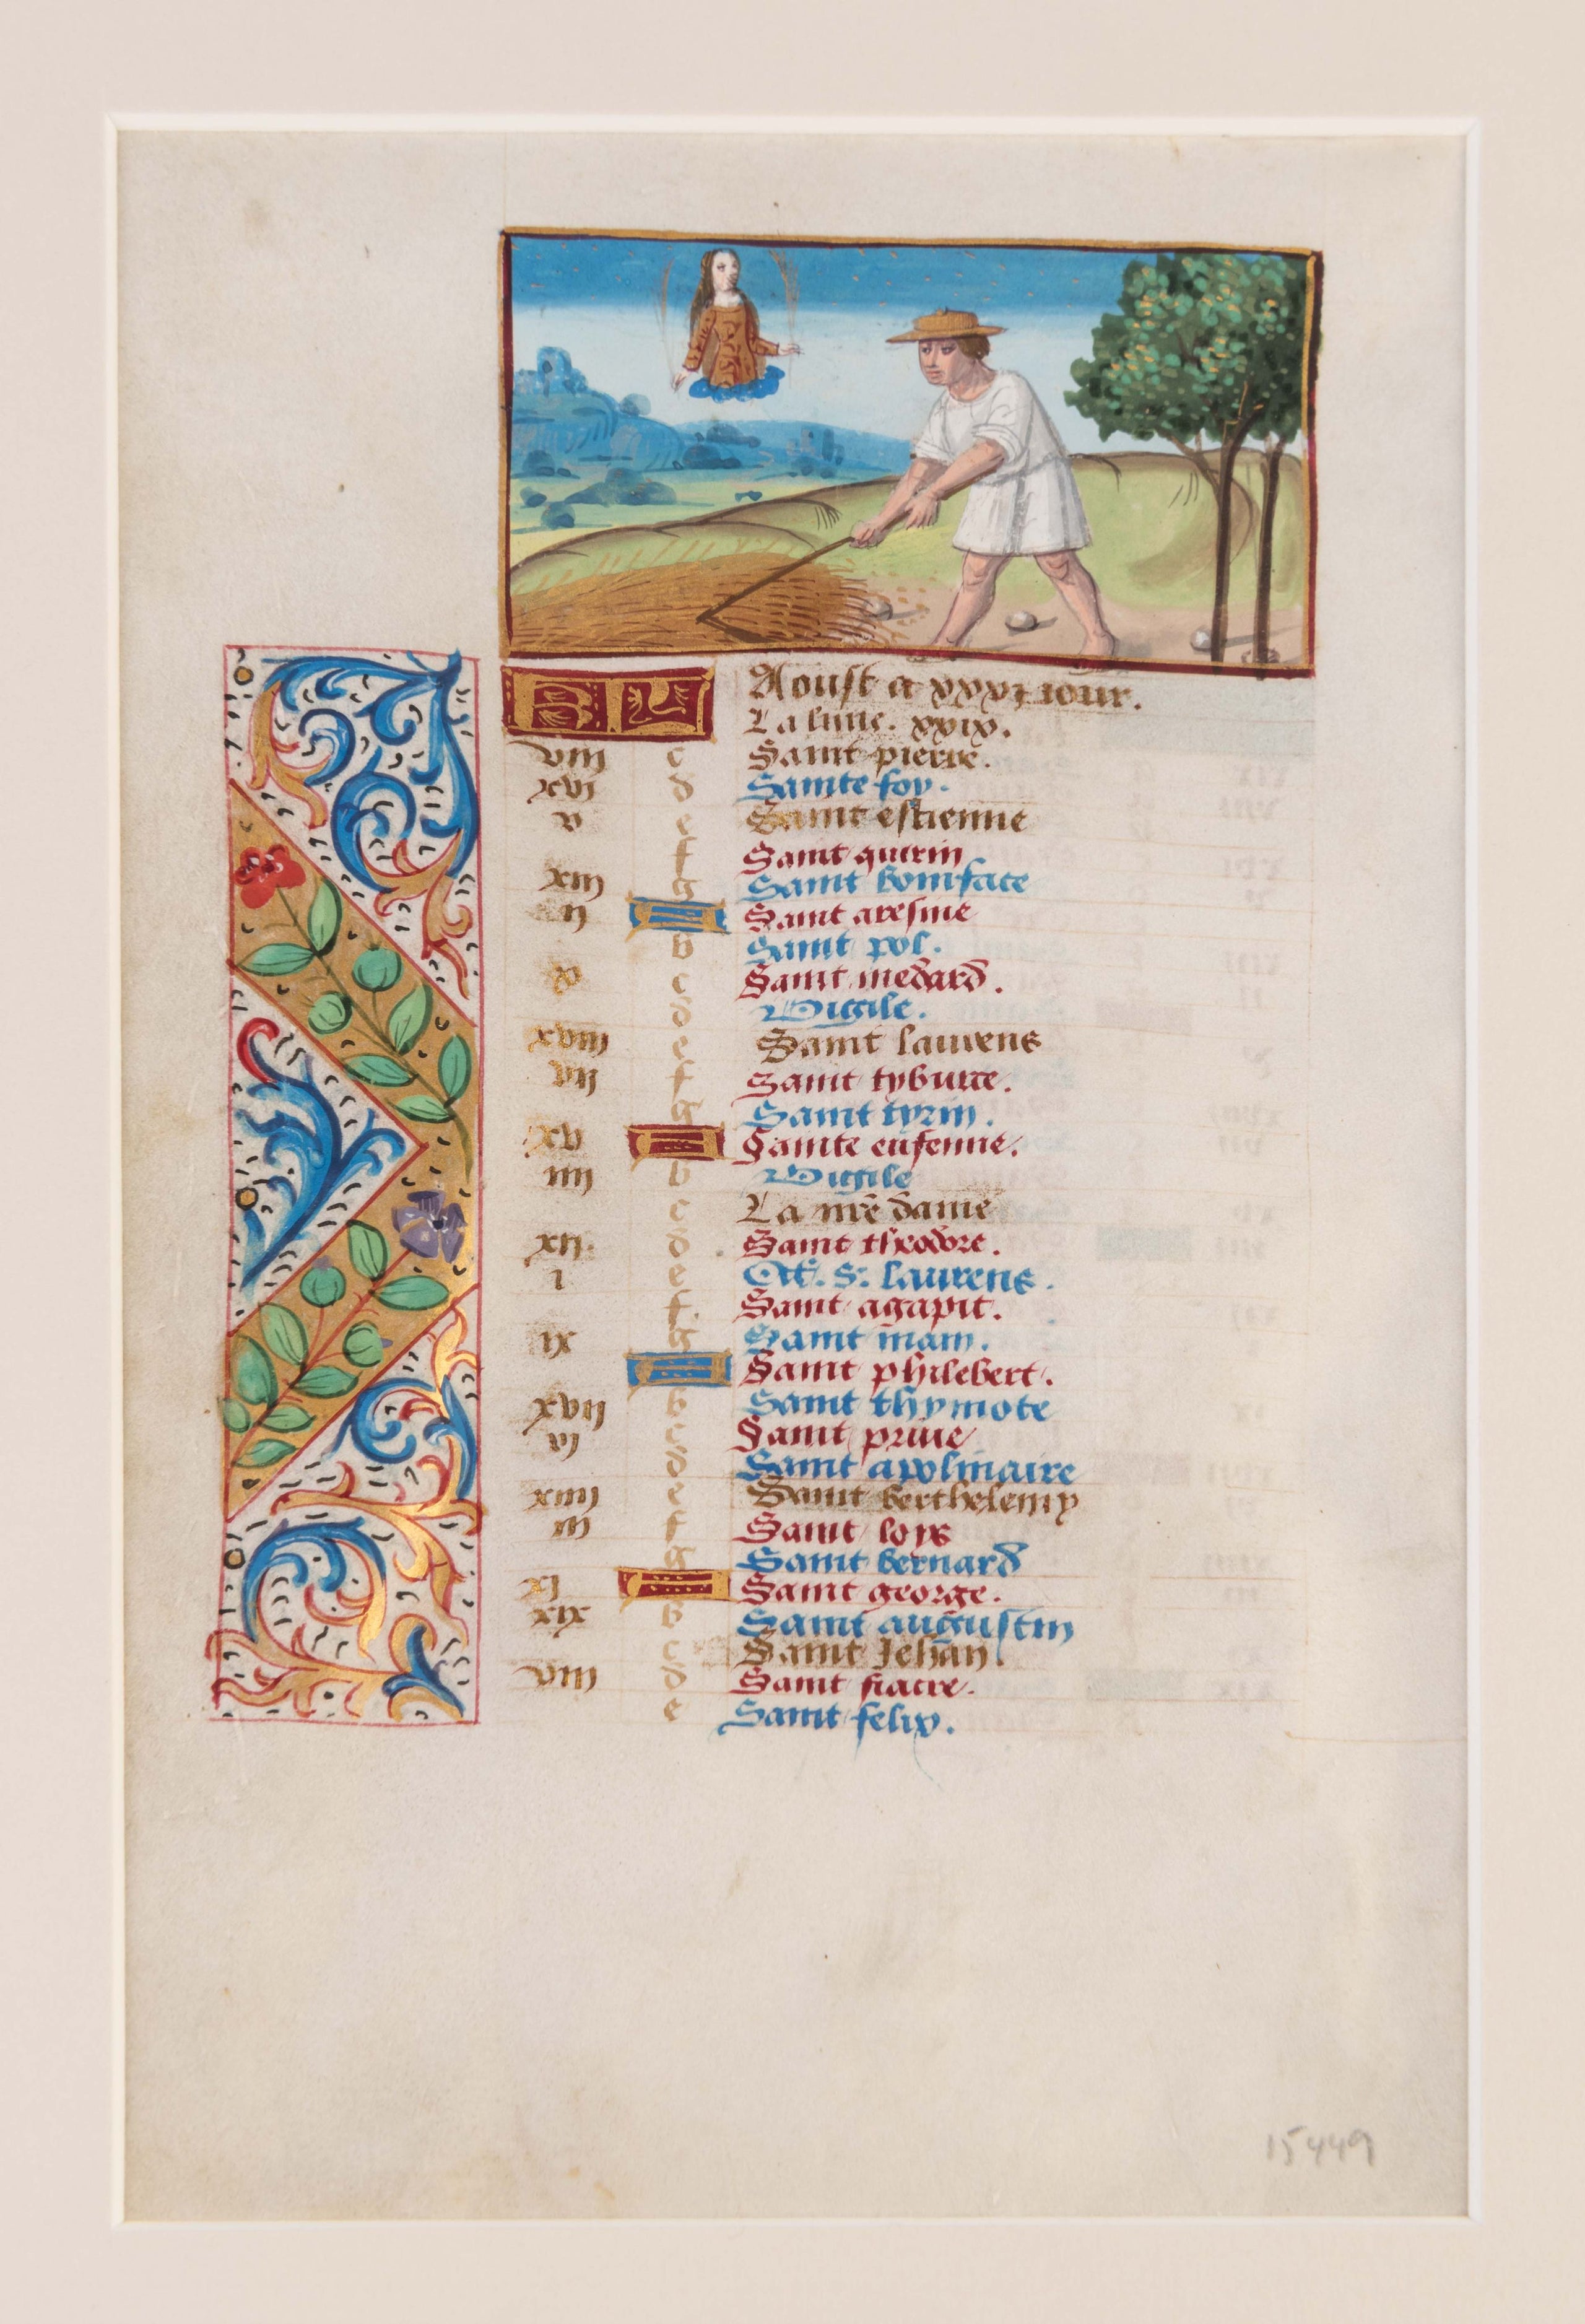 KL Aoust a xxxi iour.
La lune. xxix.
viii c Saint pierre.
xvi d Sainte foy.
v e Saint estienne
f Saint quirin
xiii g Saint boniface
ii Saint aresme
b Saint pol.
x c Saint medard.
d Vigile.
xviii e Saint laurens
vii f Saint tyburce.
g Saint tyrin.
xv Sainte eufemie.
iiii b Vigile
c La nr̄e dame
xii. d Saint theodore.
i e Oct. S. laurens.
f Saint agapit.
ix g Saint mam.
Saint philebert.
xvii b Saint thymote
vi c Saint prive
d Saint apolinaire
xiiii e Saint berthelemy
iii f Saint loys
g Saint bernard
xi Saint george.
xix b Saint augustin
c Saint Jehan.
viii d Saint fiacre.
e Saint felix.
15449